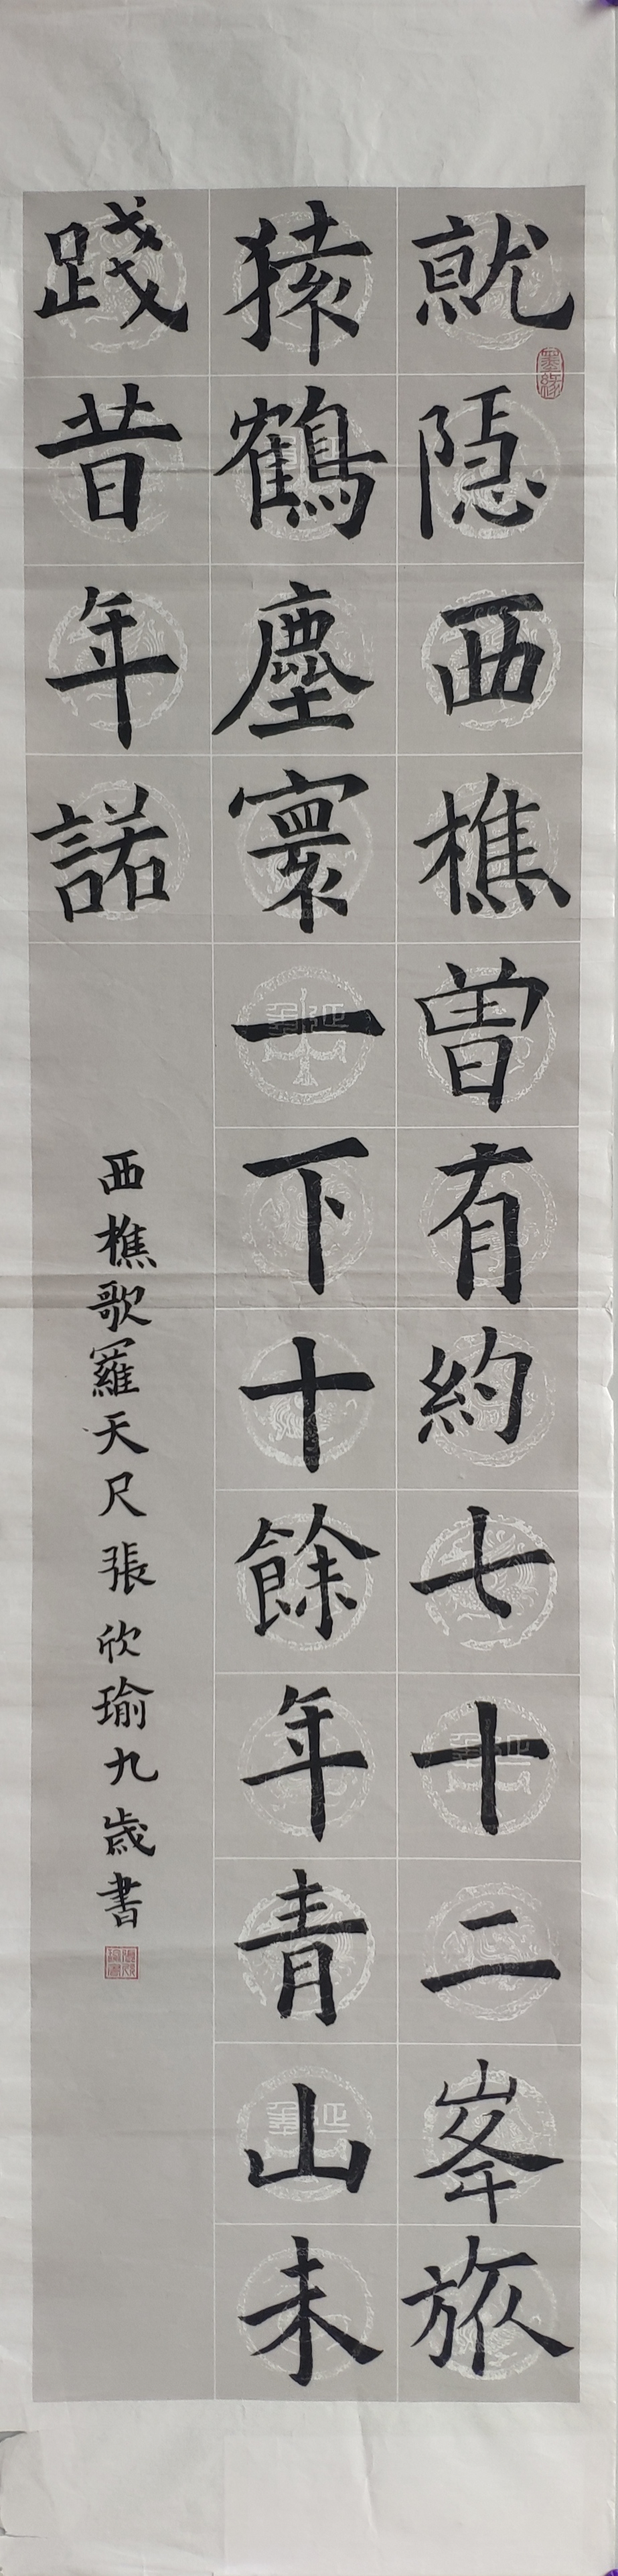 就隱西樵曾有約七十二峯旅
猿鶴塵寰一下十餘年青山未
踐昔年諾
西樵歌羅天尺張欣瑜九歲書
墨緣